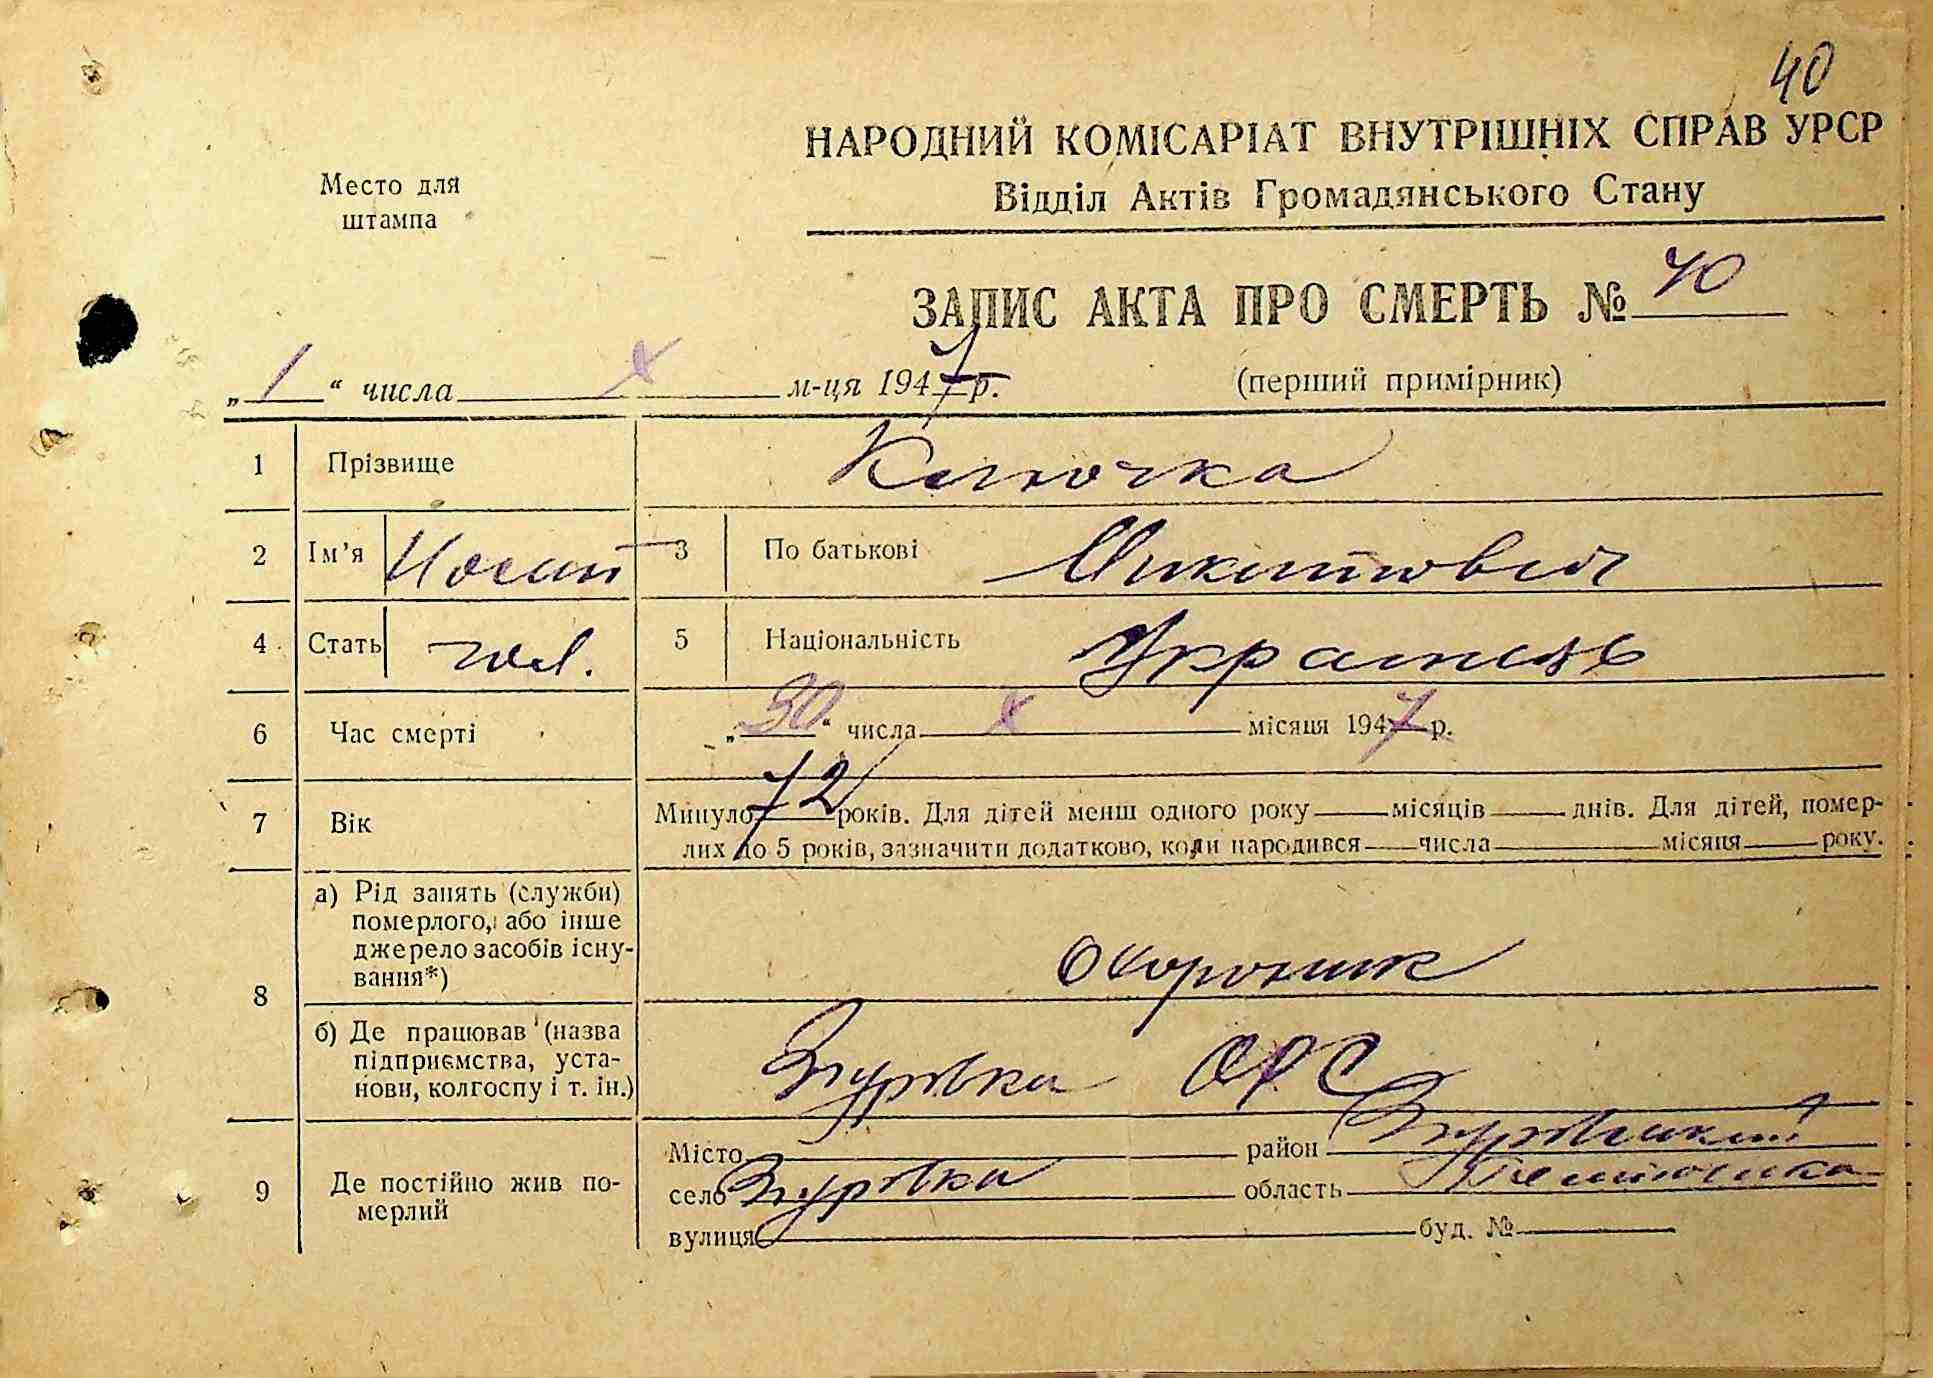 40
НАРОДНИЙ КОМІСАРІАТ ВНУТРІШНІХ СПРАВ УРСР
Відділ Актів Громадянського Стану
Место для
штампа
ЗАПИС АКТА ПРО СМЕРТЬ № 40
„ 1 “ числа X м-ця 1947 р. (перший примірник)
1 Прізвище Клочка
2 Ім’я Йосип 3 По батькові Микитович
4 Стать чол. 5 Національність Українець
6 Час смерті „ 30 “ числа X місяця 1947 р.
7 Вік Минуло 72 років. Для дітей менш одного року місяців днів. Для дітей, помер-
лих до 5 років, зазначити додатково, коли народився числа місяця року.
8 а) Рід занять (служби)
померлого, або інше
джерело засобів існу-
вання*) Охороник
б) Де працював (назва
підприємства, уста-
нови, колгоспу і т. ін.) Згурівка ОРС
9 Де постійно жив по-
мерлий
Місто район Згурівський
село Згурівка область Полтавська
вулиця буд. №